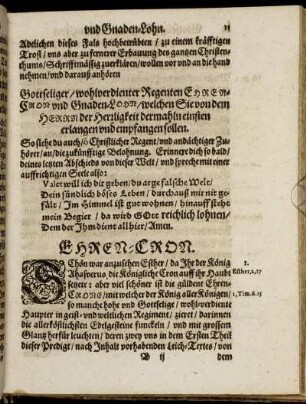 vnd Gnaden-Lohn. 11
Adelichen dieses Fals hochbetrübten / zu einem kräfftigen
Trost / vns aber zu fernerer Erbauung des gantzen Christen-
thums / Schrifftmässig zuerklären / wollen vor vnd an die hand
nehmen / vnd darauß anhören
Gottseliger / wohlverdienter Regenten EHREN-
CRON vnd Gnaden-LOHN / welchen Sie von dem
HERRN der Herrligkeit dermahln einsten
erlangen vnd empfangen sollen.
So siehe du auch / ô Christlicher Regent / vnd andächtiger Zu-
hörer / an / die zukünfftige Belohnung. Erinnere dich so bald /
deines letzten Abschieds von dieser Welt / vnd sprech mit einer
auffrichtigen Seele also:
Valet will ich dir geben / du arge falsche Welt /
Dein sündlich böses Leben / durchauß mir nit ge-
fält / Im Himmel ist gut wohnen / hinauff steht
mein Begier / da wird GOtt reichlich lohnen /
Dem der Ihm dient allhier / Amen.
EHREN-CRON.
SChön war anzusehen Esther / da Ihr der König
Ahasverus, die Königliche Cron auff ihr Haubt
setzete: aber viel schöner ist die gülden Ehren-
CRONE / mit welcher der König aller Königen /
so manche hohe vnd Gottselige / wohlverdiente
Häupter in geist- vnd weltlichen Regiment / zieret / darinnen
die allerköstlichsten Edelgesteine funckeln / vnd mit grossem
Glantz herfür leuchten / deren zwey vns in dem Ersten Theil
dieser Predigt / nach Inhalt vorhabenden Leich-Textes / von
B ij dem
1.
Esther, 2, 17
1, Tim. 6. 15